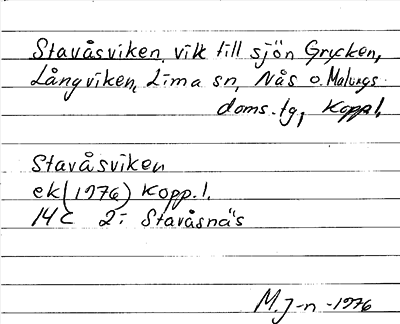 Stavåsviken, vik till sjön Grycken,
Långviken, Lima sn, Nås o. Malungs
doms.tg, Kopp l.
Stavåsviken
ek (1976) Kopp. l.
14 C 2: Stavåsnäs
M. J-n -1976